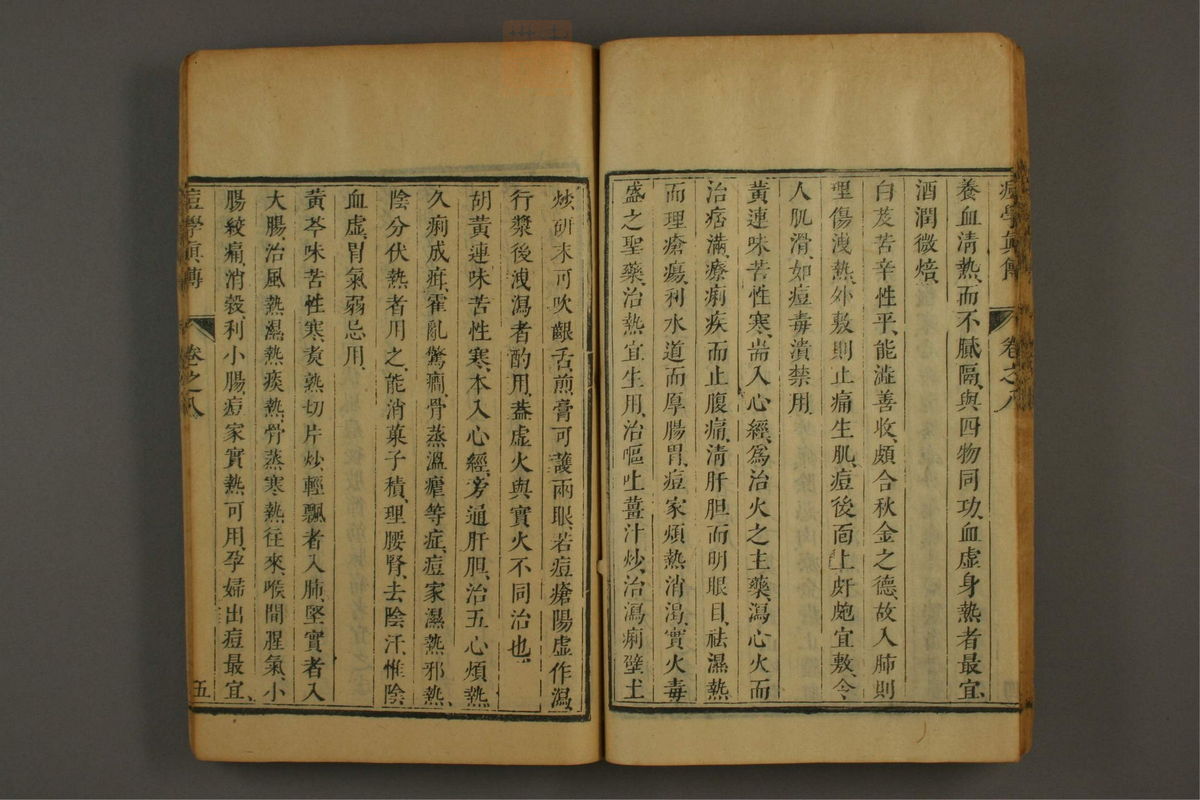 痘學眞傳 卷之八
養血清熱、而不膩隔、與四物同功、血虛身熱者最宜、
酒潤微焙、
白芨苦辛性平、能澁善收、頗合秋金之德、故入肺則
理傷洩熱、外敷則止痛生肌、痘後面上皯皰宜敷、令
人肌滑、如痘毒潰禁用、
黃連味苦性寒、耑入心經、爲治火之主藥、瀉心火而
治痞滿、療痢疾而止腹痛、清肝胆而明眼目、祛濕熱
而理瘡瘍、利水道而厚腸胃、痘家煩熱消渴、實火毒
盛之聖藥、治熱宜生用、治嘔吐薑汁炒、治瀉痢壁土
炒、研末可吹齦舌、煎膏可護兩眼、若痘瘡陽虛作瀉、
行漿後洩瀉者酌用、葢虛火與實火不同治也、
胡黃連味苦性寒、本入心經、旁通肝胆、治五心煩熱、
久痢成疳、霍亂驚癎、骨蒸溫瘧等症、痘家濕熱邪熱、
陰分伏熱者用之、能消菓子積、理腰腎、去陰汗、惟陰
血虛、胃氣弱忌用、
黃芩味苦性寒、煑熟切片炒、輕飄者入肺、堅實者入
大腸、治風熱濕熱痰熱、骨蒸寒熱往來、喉間腥氣、小
腸絞痛、消穀利小腸、痘家實熱可用、孕婦出痘最宜、
痘學眞傳 卷之八 五